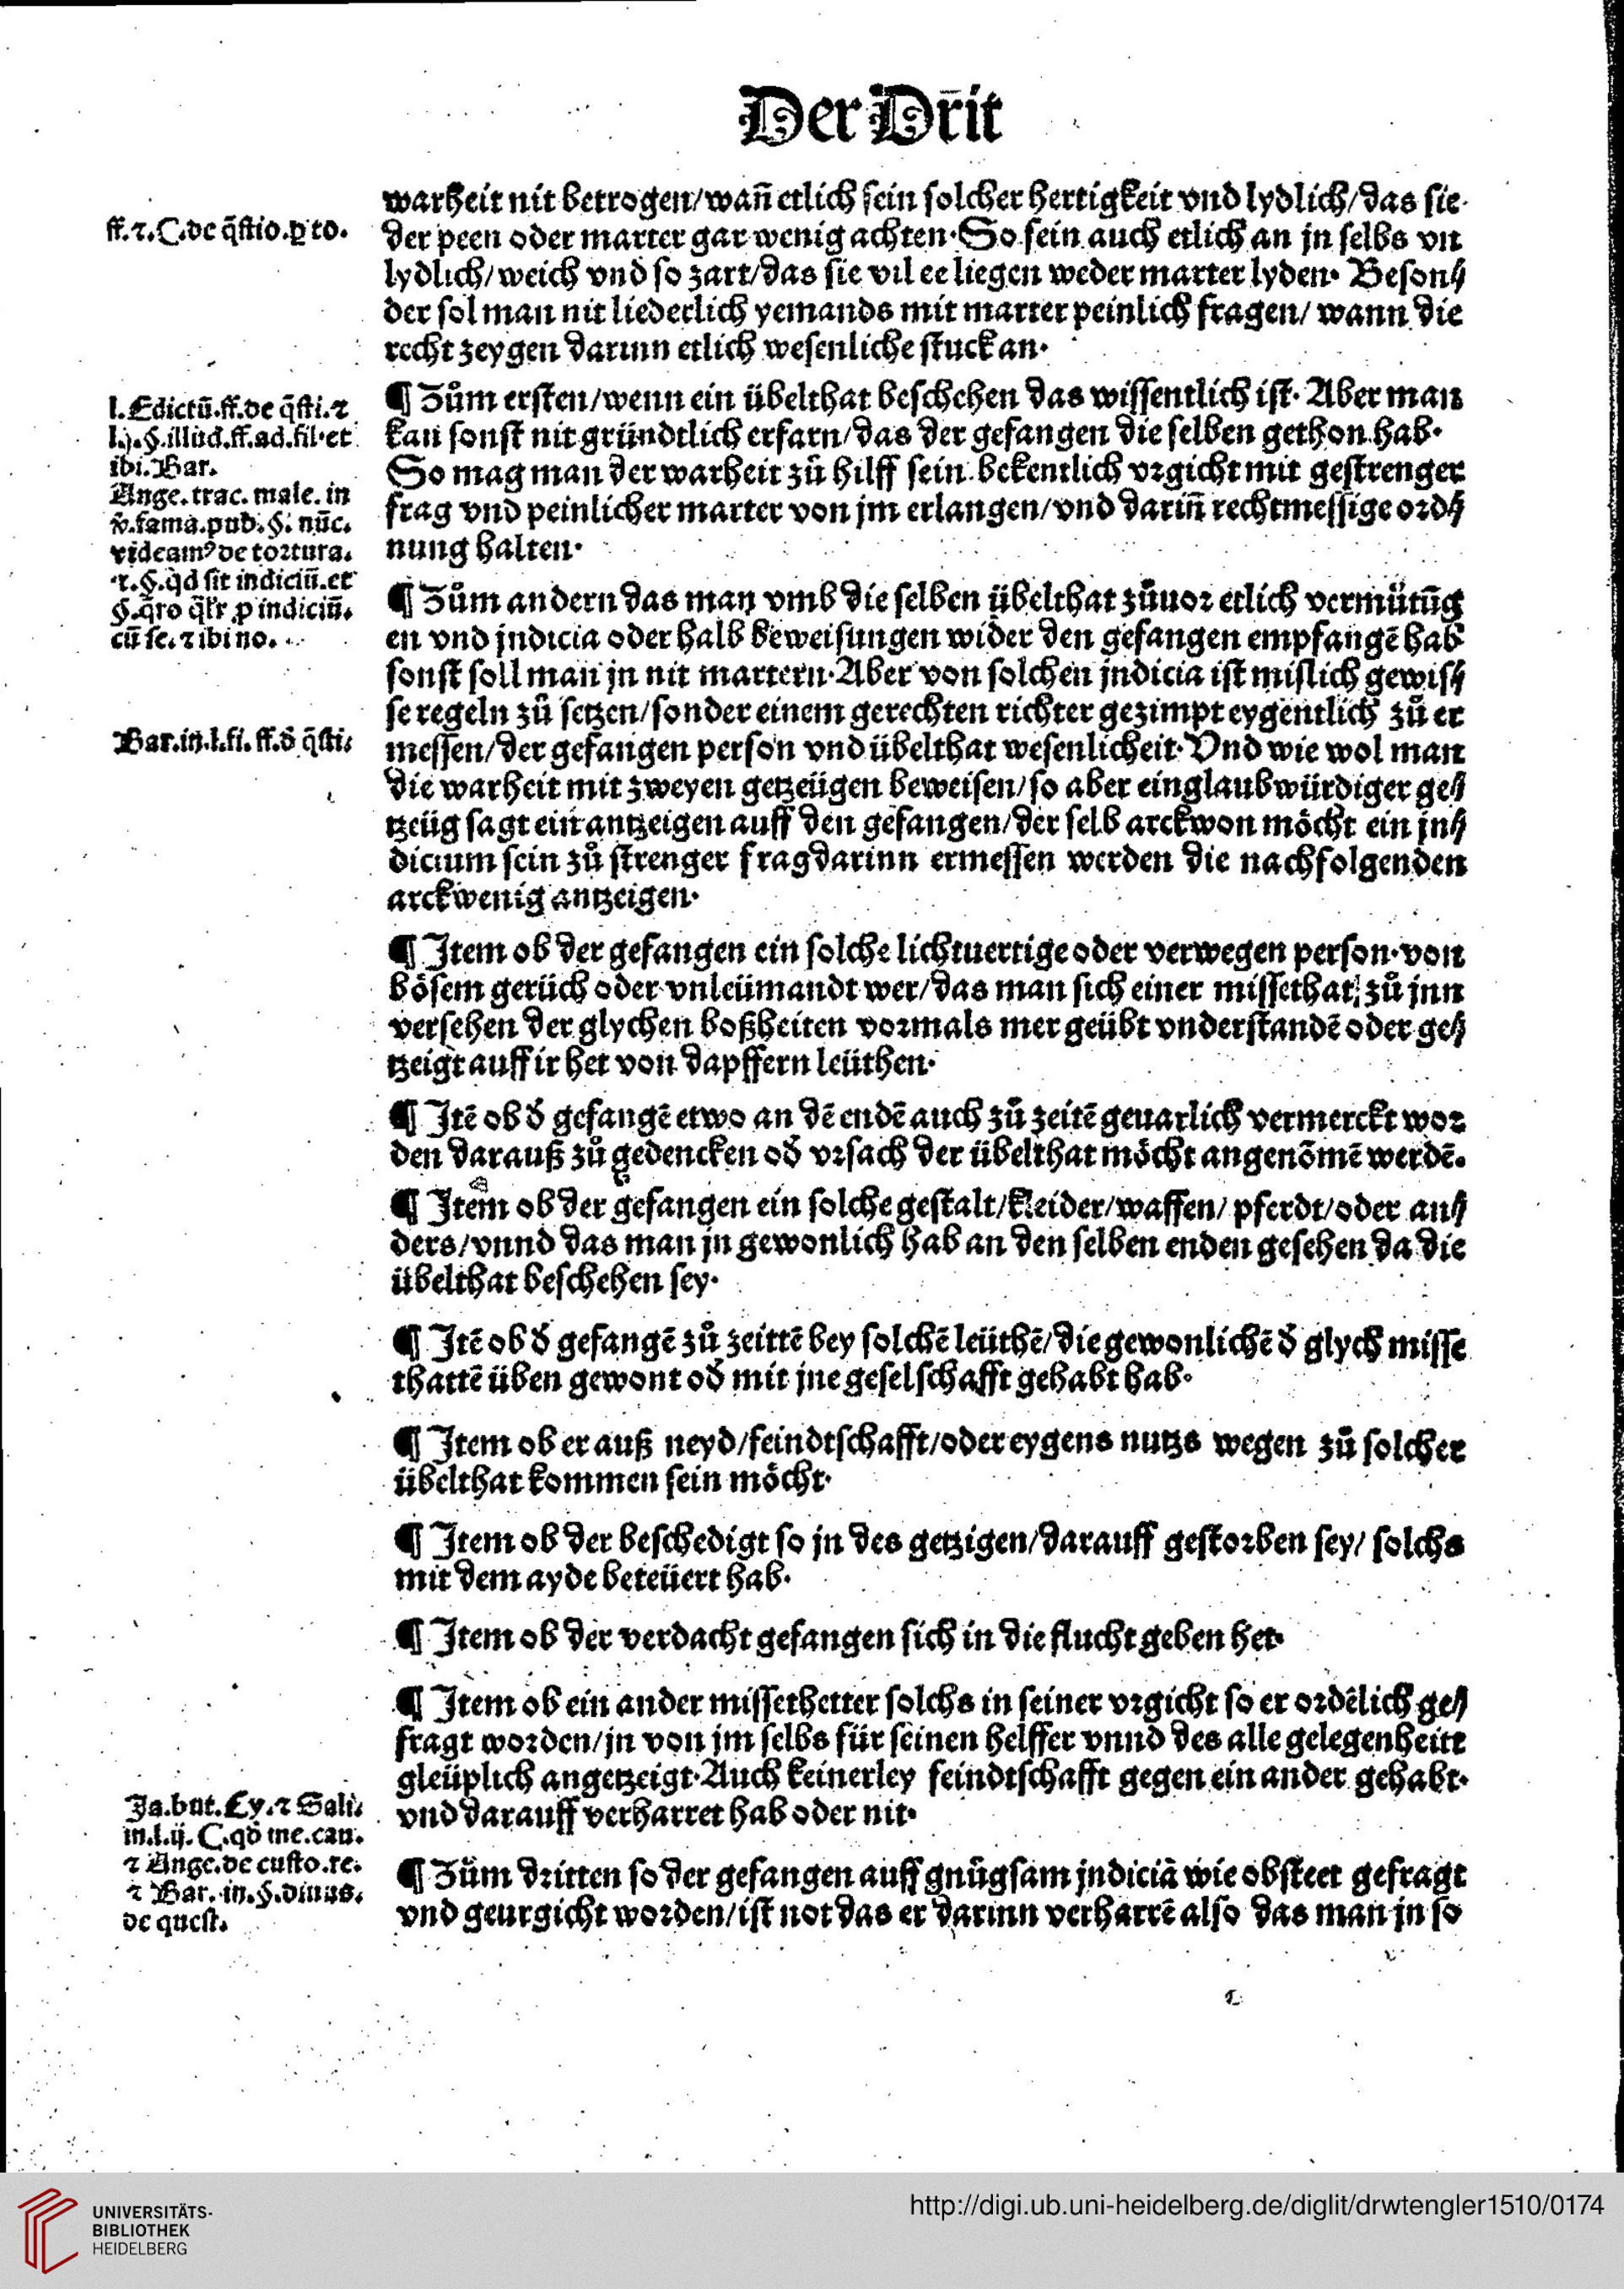 Der Drit
warheit nit betrogen/wañ etlich sein solcher hertigkeit vnd lydlich/das sie
ff.⁊.C.de q̃stio.ꝑ to.
der peen oder marter gar wenig achten·So sein auch etlich an jn selbs vn
lydlich/weich vnd so zart/das sie vil ee liegen weder marter lyden· Beson⸗
der sol man nit liederlich yemands mit marter peinlich fragen/ wann die
recht zeygen darinn etlich wesenliche stuck an·
l.Edictũ.ff.de q̃sti.⁊
l.j.§.illud.ff.ad.sil·et
ibi.Bar.
Ange.trac.male.in
v̾.fama.pub.§. nũc.
videamꝰ de tortura.
⁊.§.qd sit indiciũ.et
§.q̃ro q̃lr ꝓ indiciũ.
cũ se.⁊ ibi no.
¶ Zům ersten/wenn ein übelthat beschehen das wissentlich ist· Aber man
kan sonst nit gründtlich erfarn/das der gefangen die selben gethon hab·
So mag man der warheit zů hilff sein bekentlich vrgicht mit gestrenger
frag vnd peinlicher marter von jm erlangen/vnd dariñ rechtmessige ord⸗
nung halten·
¶ Zům andern das man vmb die selben übelthat zůuor etlich vermůtũg
en vnd jndicia oder halb beweisungen wider den gefangen empfangẽ hab
sonst soll man jn nit martern·Aber von solchen jndicia ist mislich gewis⸗
se regeln zů setzen/sonder einem gerechten richter gezimpt eygentlich zů er
Bar.in.l.fi.ff.ð q̃sti⸗
messen/der gefangen person vnd übelthat wesenlicheit·Vnd wie wol man
die warheit mit zweyen getzeügen beweisen/so aber ein glaubwürdiger ge⸗
tzeüg sagt ein antzeigen auff den gefangen/der selb arckwon möcht ein jn⸗
dicium sein zů strenger frag darinn ermessen werden die nachfolgenden
arckwenig antzeigen·
¶ Item ob der gefangen ein solche lichtuertige oder verwegen person·von
bösem gerüch oder vnleümandt wer/das man sich einer missethat zů jnn
versehen der glychen boßheiten vormals mer geübt vnderstandẽ oder ge⸗
tzeigt auff ir het von dapffern leüthen·
¶ Itẽ ob ð gefangẽ etwo an dẽ endẽ auch zů zeitẽ geuarlich vermerckt wor
den darauß zů gedencken oð vrsach der übelthat möcht angenõmẽ werdẽ.
¶ Item ob der gefangen ein solche gestalt/kleider/waffen/ pferdt/oder an⸗
ders/vnnd das man jn gewonlich hab an den selben enden gesehen da die
übelthat beschehen sey·
¶ Itẽ ob ð gefangẽ zů zeittẽ bey solchẽ leüthẽ/die gewonlichẽ ð glych misse
thattẽ üben gewont oð mit jne geselschafft gehabt hab·
¶ Item ob er auß neyd/feindtschafft/oder eygens nutzs wegen zů solcher
übelthat kommen sein möcht·
¶ Item ob der beschedigt so jn des getzigen/darauff gestorben sey/ solchs
mit dem ayde beteüert hab·
¶ Item ob der verdacht gefangen sich in die flucht geben het·
¶ Item ob ein ander missethetter solchs in seiner vrgicht so er ordẽlich ge⸗
fragt worden/jn von jm selbs für seinen helffer vnnd des alle gelegenheitt
gleüplich angetzeigt·Auch keinerley feindtschafft gegen ein ander gehabt·
vnd darauff verharret hab oder nit·
Ja.but.Cy.⁊ Sali⸗
in.l.ij. C.qð me.cau.
⁊ Ange.de custo.re.
⁊ Bar.in.§.diuus.
de quest.
¶ Zům dritten so der gefangen auff gnůgsam jndiciã wie obsteet gefragt
vnd geurgicht worden/ist not das er darinn verharrẽ also das man jn so
UNIVERSITÄTS-
BIBLIOTHEK
HEIDELBERG
http://digi.ub.uni-heidelberg.de/diglit/drwtengler1510/0174